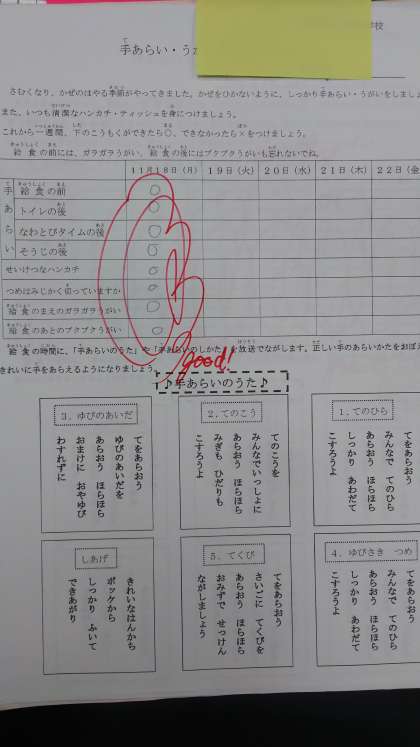 手あらい・う
校
さむくなり、かぜのはやる季節がやってきました。かぜをひかないように、しっかり手あらい・うがいをしましょ
また、いつも清潔なハンカチ・ティッシュを身につけましょう。
これから一週間、下のこうもくができたら○、できなかったら×をつけましょう。
給食の前には、ガラガラうがい、給食の後にはブクブクうがいも忘れないでね。
11月18日(月) 19日(火) 20日(水) 21日(木) 22日(金
手あらい
給食の前 ○
トイレの後 ○
なわとびタイムの後 ○
そうじの後 ○
せいけつなハンカチ ○
つめはみじかく切っていますか ○
給食のまえのガラガラうがい ○
給食のあとのブクブクうがい ○
good!
給食の時間に、「手あらいのうた」や「手あらいのしかた」を放送でながします。正しい手のあらいかたをおぼえ
きれいに手をあらえるようになりましょう。
♪手あらいのうた♪
1.てのひら
てをあらおう
みんなで てのひら
あらおう ほらほら
しっかり あわだて
こすろうよ
2.てのこう
てのこうを
みんなでいっしょに
あらおう ほらほら
みぎも ひだりも
こすろうよ
3.ゆびのあいだ
てをあらおう
ゆびのあいだを
あらおう ほらほら
おまけに おやゆび
わすれずに
4.ゆびさき つめ
てをあらおう
みんなで てのひら
あらおう ほらほら
しっかり あわだて
こすろうよ
5.てくび
てをあらおう
さいごに てくびを
あらおう ほらほら
おみずで せっけん
ながしましょう
しあげ
きれいなはんかち
ポッケから
しっかり ふいて
できあがり